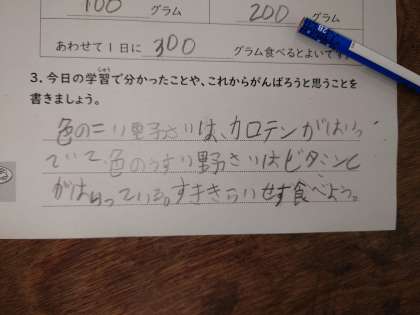 100 グラム 200 グラム
あわせて1日に 300 グラム食べるとよいです
3. 今日の学習で分かったことや、これからがんばろうと思うことを
書きましょう。
色のこい野さいは、カロテンがはいっ
ていて、色のうすい野さいはビタミンC
がはいっている。すききらいせず食べよう。